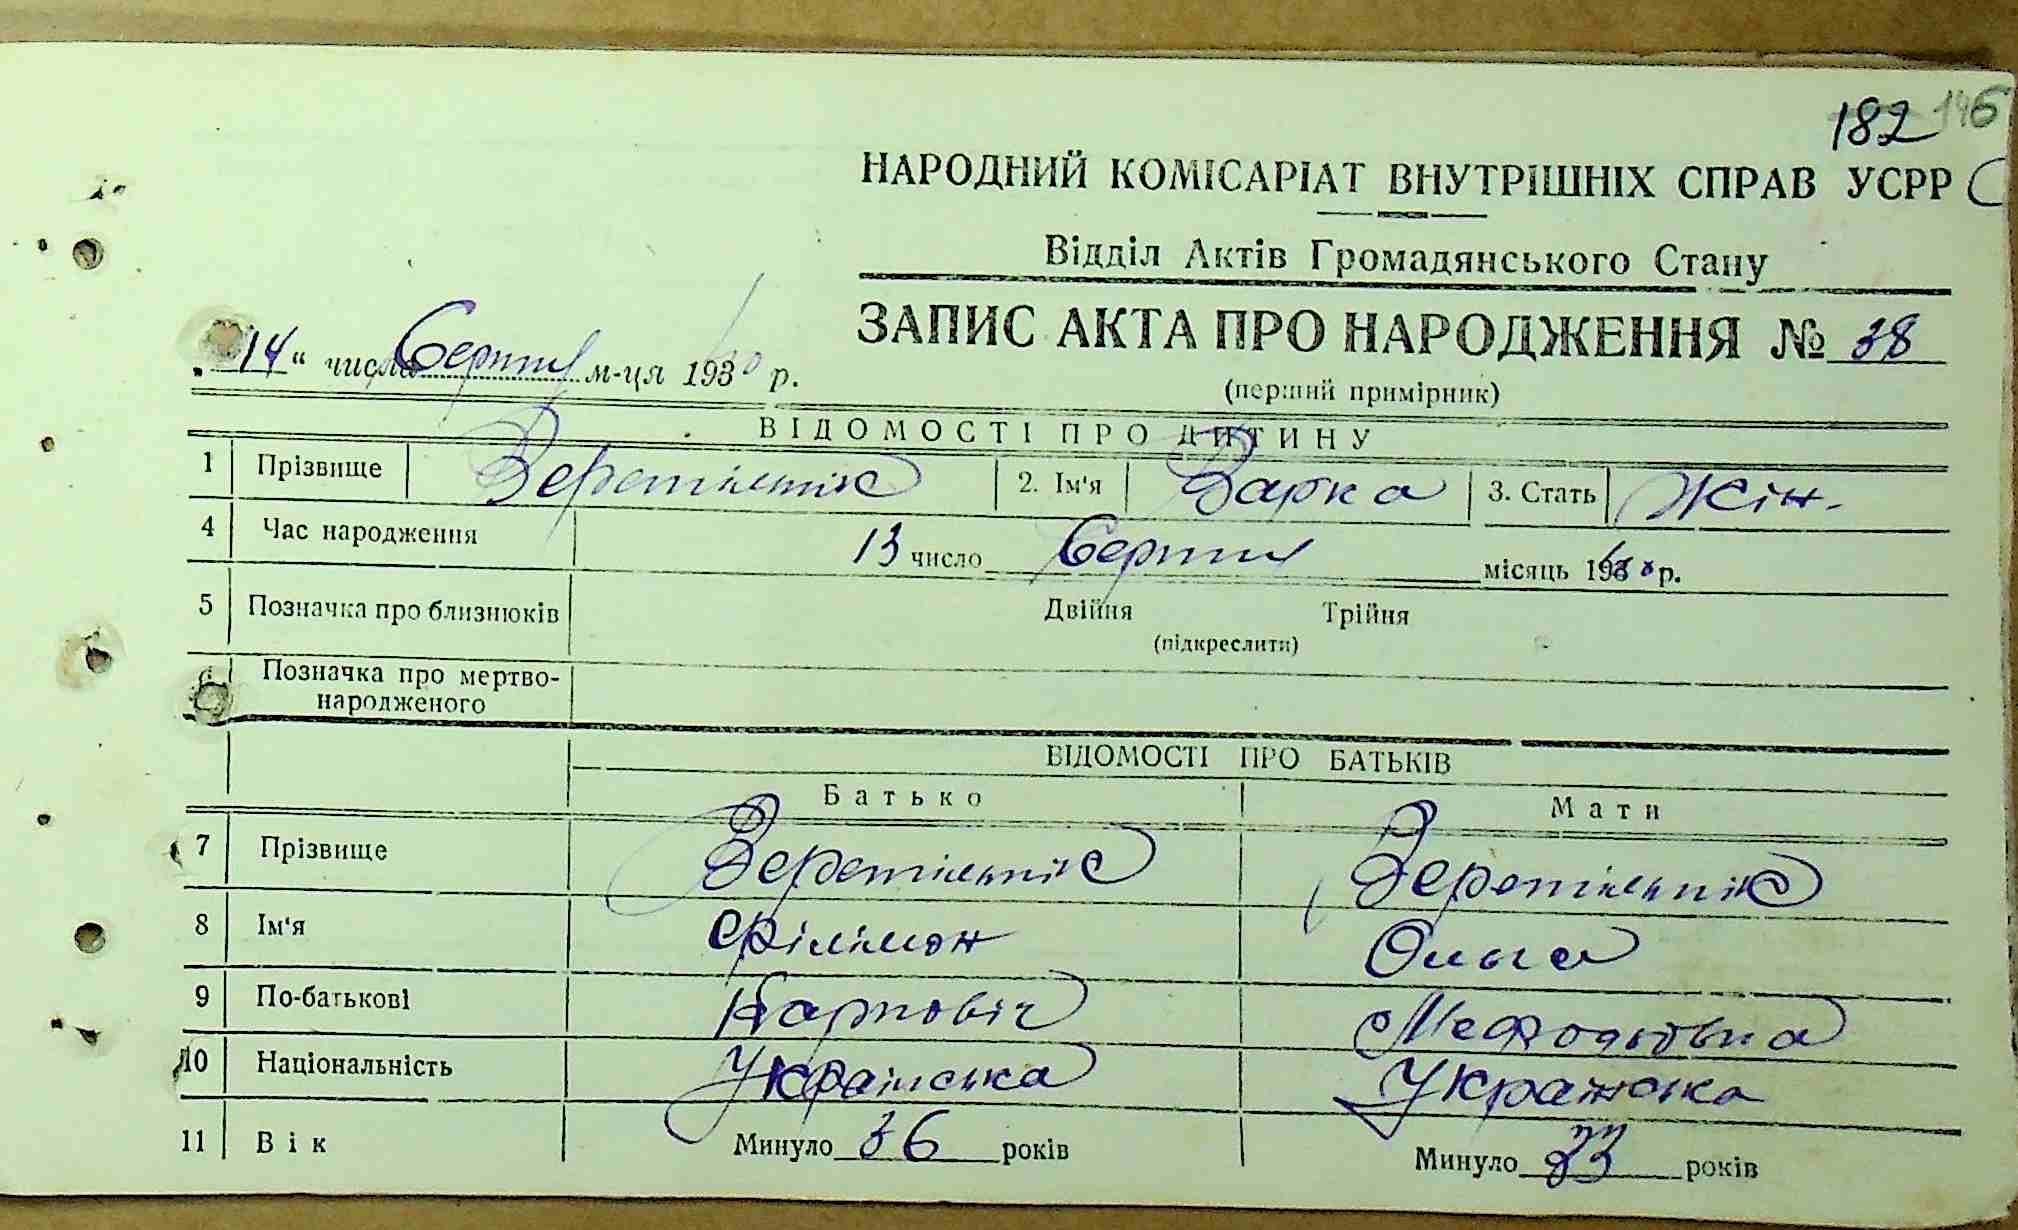 182 146
НАРОДНИЙ КОМІСАРІАТ ВНУТРІШНІХ СПРАВ УСРР
Відділ Актів Громадянського Стану
ЗАПИС АКТА ПРО НАРОДЖЕННЯ № 38
„14“ числа Серпня м-ця 1930 р.
(перший примірник)
ВІДОМОСТІ ПРО ДИТИНУ
1 Прізвище Веретільнік 2. Ім'я Варка 3. Стать Жін.
4 Час народження 13 число Серпня місяць 193 р.
5 Позначка про близнюків Двійня Трійня
(підкреслити)
6 Позначка про мертво-
народженого
ВІДОМОСТІ ПРО БАТЬКІВ
Батько Мати
7 Прізвище Веретільнік Веретільнік
8 Ім'я Філімон Ольга
9 По-батькові Карповіч Мефодьовна
10 Національність Українська Українська
11 Вік Минуло 36 років Минуло 33 років